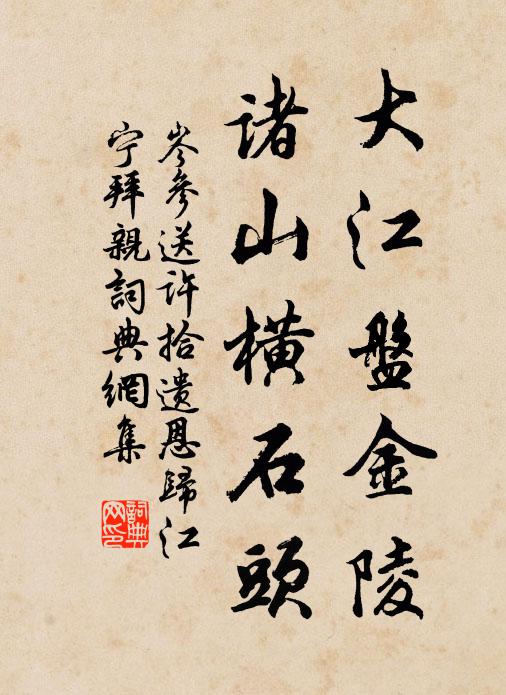 大江盤金陵
諸山橫石頭
岑參送許拾遺恩歸江
宁拜親詞典網集
詞典
网印